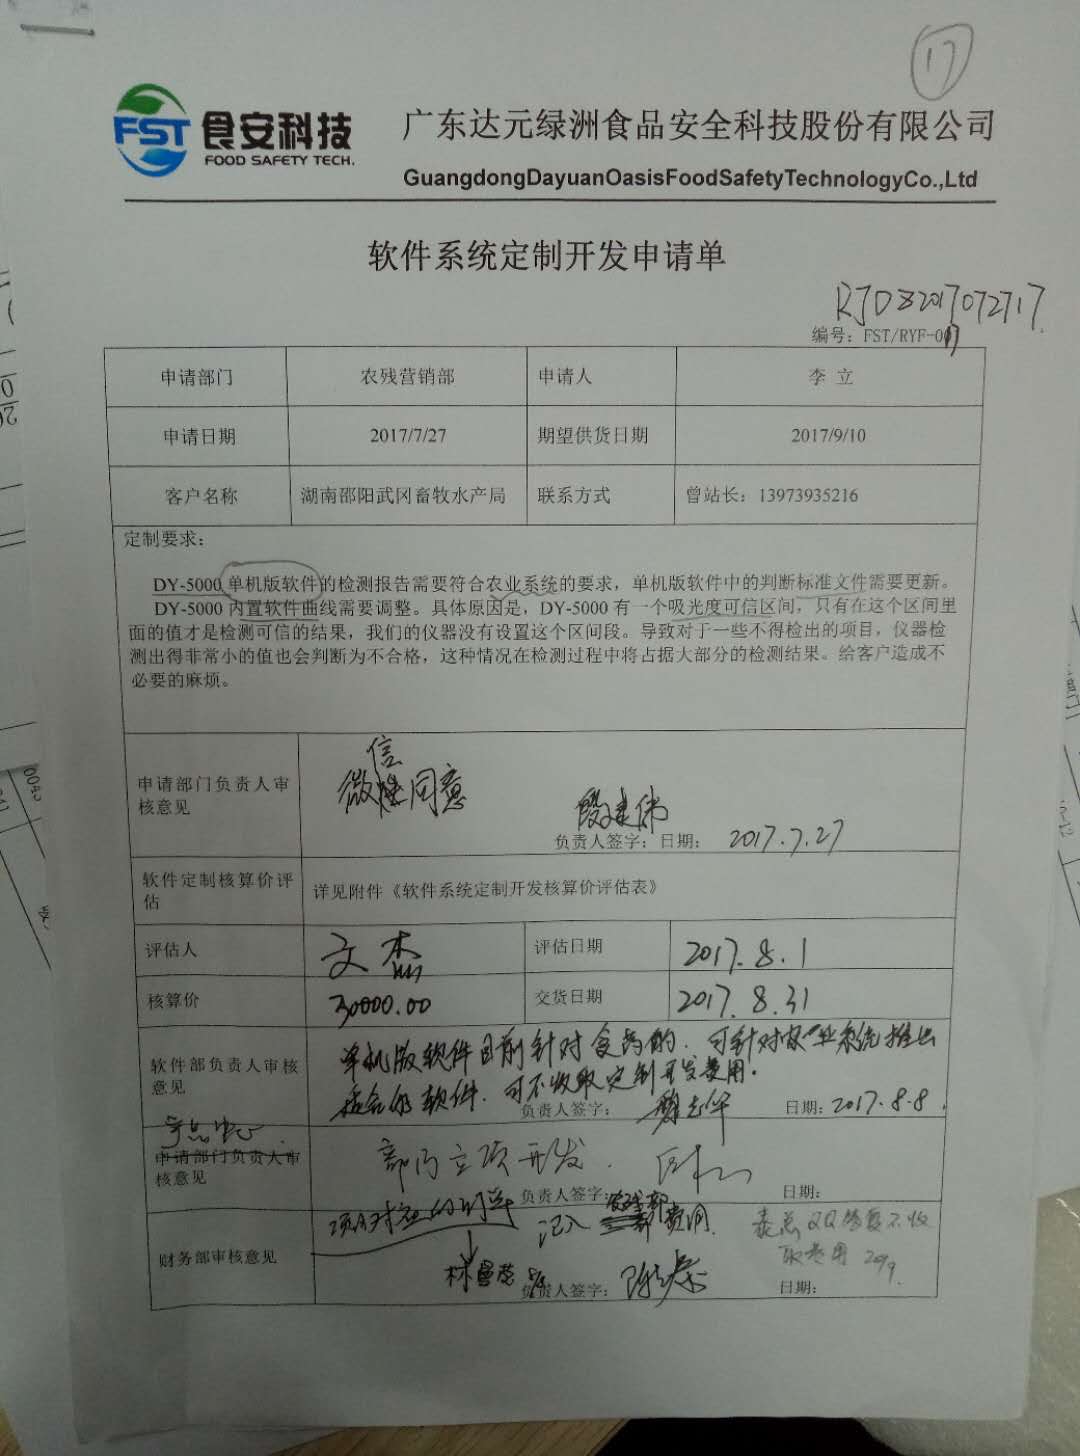 17
FST 食安科技
FOOD SAFETY TECH.
广东达元绿洲食品安全科技股份有限公司
GuangdongDayuanOasisFoodSafetyTechnologyCo.,Ltd
软件系统定制开发申请单
RJDZ2017072717
编号：FST/RYF-017
申请部门 农残营销部 申请人 李 立
申请日期 2017/7/27 期望供货日期 2017/9/10
客户名称 湖南邵阳武冈畜牧水产局 联系方式 曾站长：13973935216
定制要求：
DY-5000 单机版软件的检测报告需要符合农业系统的要求，单机版软件中的判断标准文件需要更新。
DY-5000 内置软件曲线需要调整。具体原因是，DY-5000 有一个吸光度可信区间，只有在这个区间里
面的值才是检测可信的结果，我们的仪器没有设置这个区间段。导致对于一些不得检出的项目，仪器检
测出得非常小的值也会判断为不合格，这种情况在检测过程中将占据大部分的检测结果。给客户造成不
必要的麻烦。
信
申请部门负责人审 微 同意
核意见
段建伟
负责人签字：日期： 2017.7.27
软件定制核算价评 详见附件《软件系统定制开发核算价评估表》
估
评估人 文杰 评估日期 2017.8.1
核算价 30000.00 交货日期 2017.8.31
单机版软件目前针对食药的，可针对农业系统推出
软件部负责人审核
意见 适合的软件，可不收取定制开发费用。
负责人签字： 日期：2017.8.8
申请部门负责人审 部门立项开发．
核意见
负责人签字： 日期：
项目对应的订单 记入 费用
财务部审核意见 不收
取费用
负责人签字： 日期：